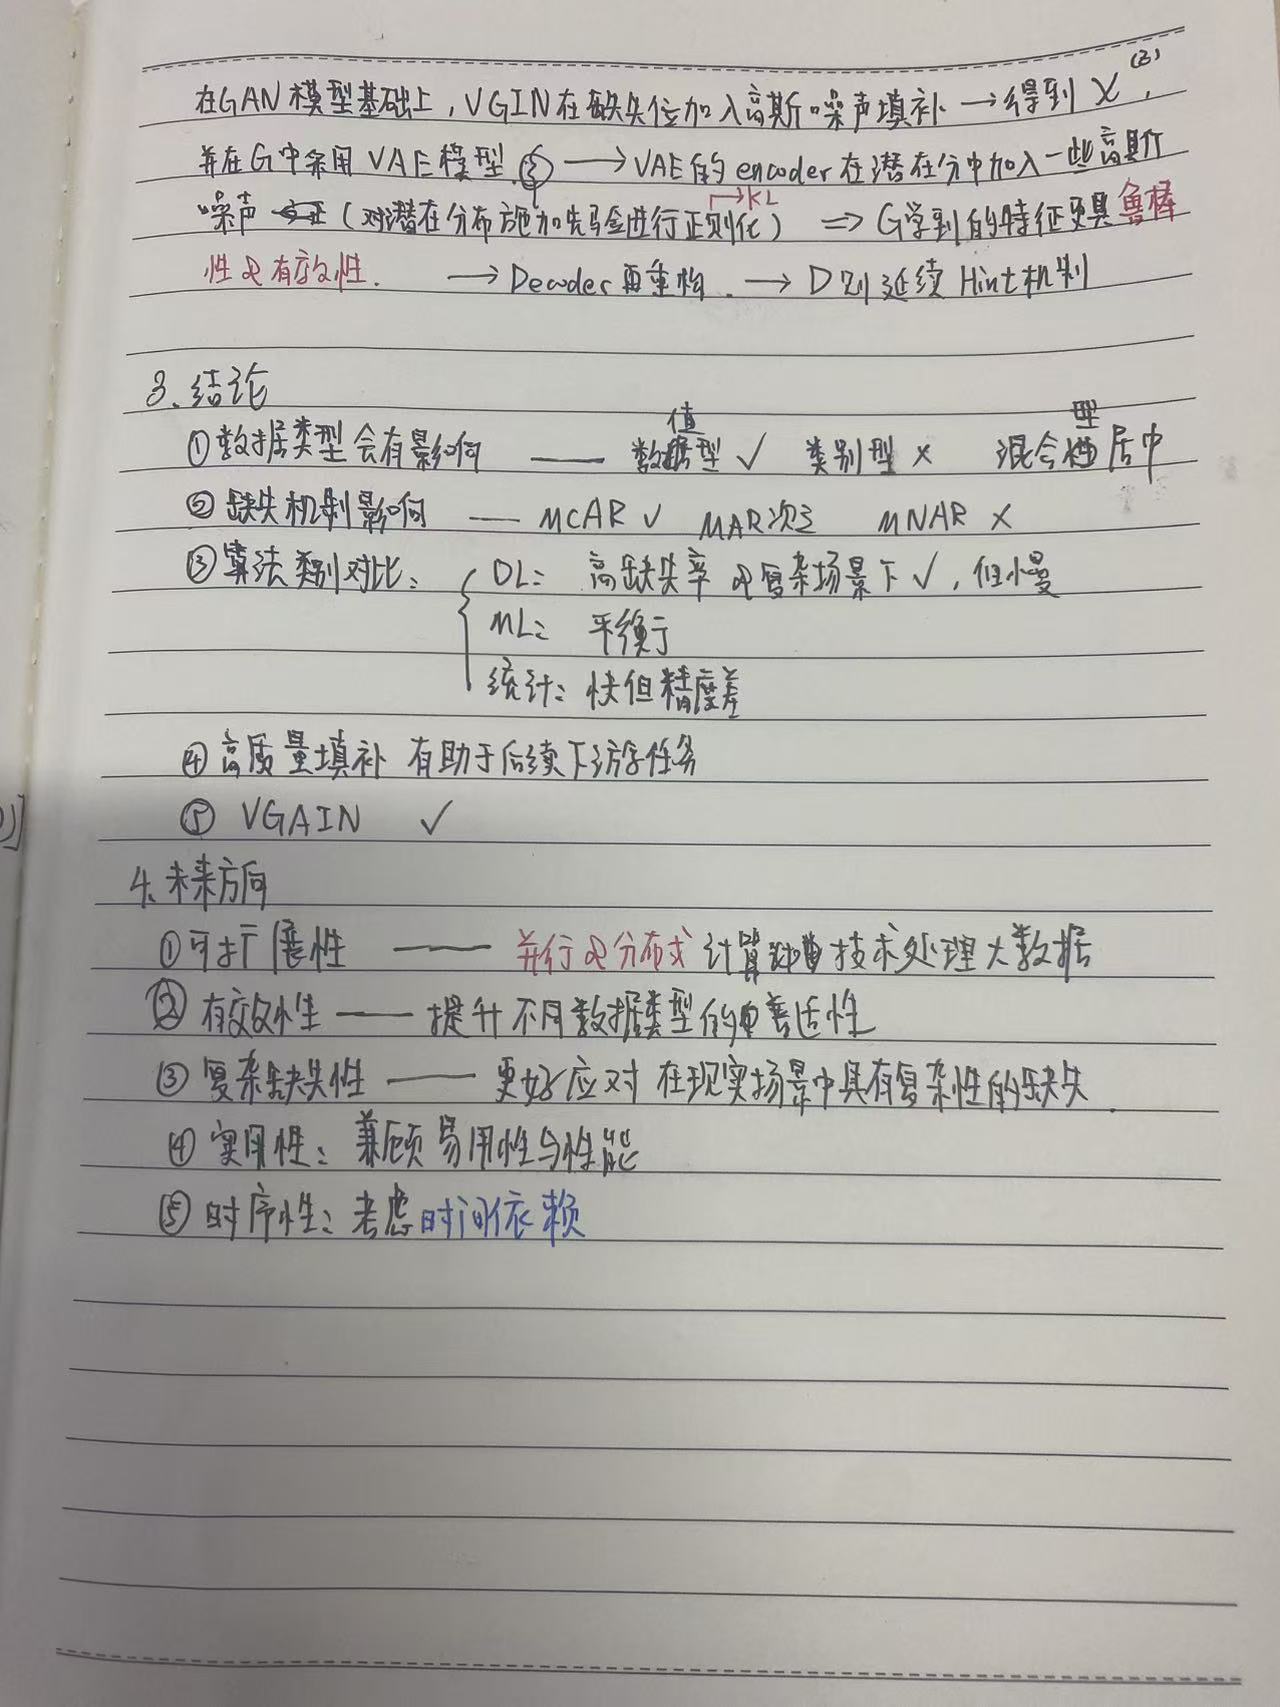 在GAN模型基础上，VGIN在缺失位加入高斯噪声填补 → 得到 X⁽³⁾，
并在G中采用 VAE模型. → VAE的encoder在潜在分中加入一些高斯
噪声（对潜在分布施加先验进行正则化） ⇒ G学到的特征更具鲁棒
→KL
性及有效性. → Decoder再重构. → D则延续Hint机制
3、结论
①数据类型会有影响 —— 数值型 ✓ 类别型 × 混合型居中
②缺失机制影响 —— MCAR ✓ MAR次之 MNAR ×
③算法类别对比： DL： 高缺失率及复杂场景下✓，但慢
ML： 平衡于
统计： 快但精度差
④高质量填补 有助于后续下游任务
⑤ VGAIN ✓
4、未来方向
①可扩展性 —— 并行及分布式计算技术处理大数据
②有效性 —— 提升不同数据类型的普适性
③复杂缺失性 —— 更好应对在现实场景中具有复杂性的缺失.
④实用性：兼顾易用性与性能
⑤时序性：考虑时间依赖